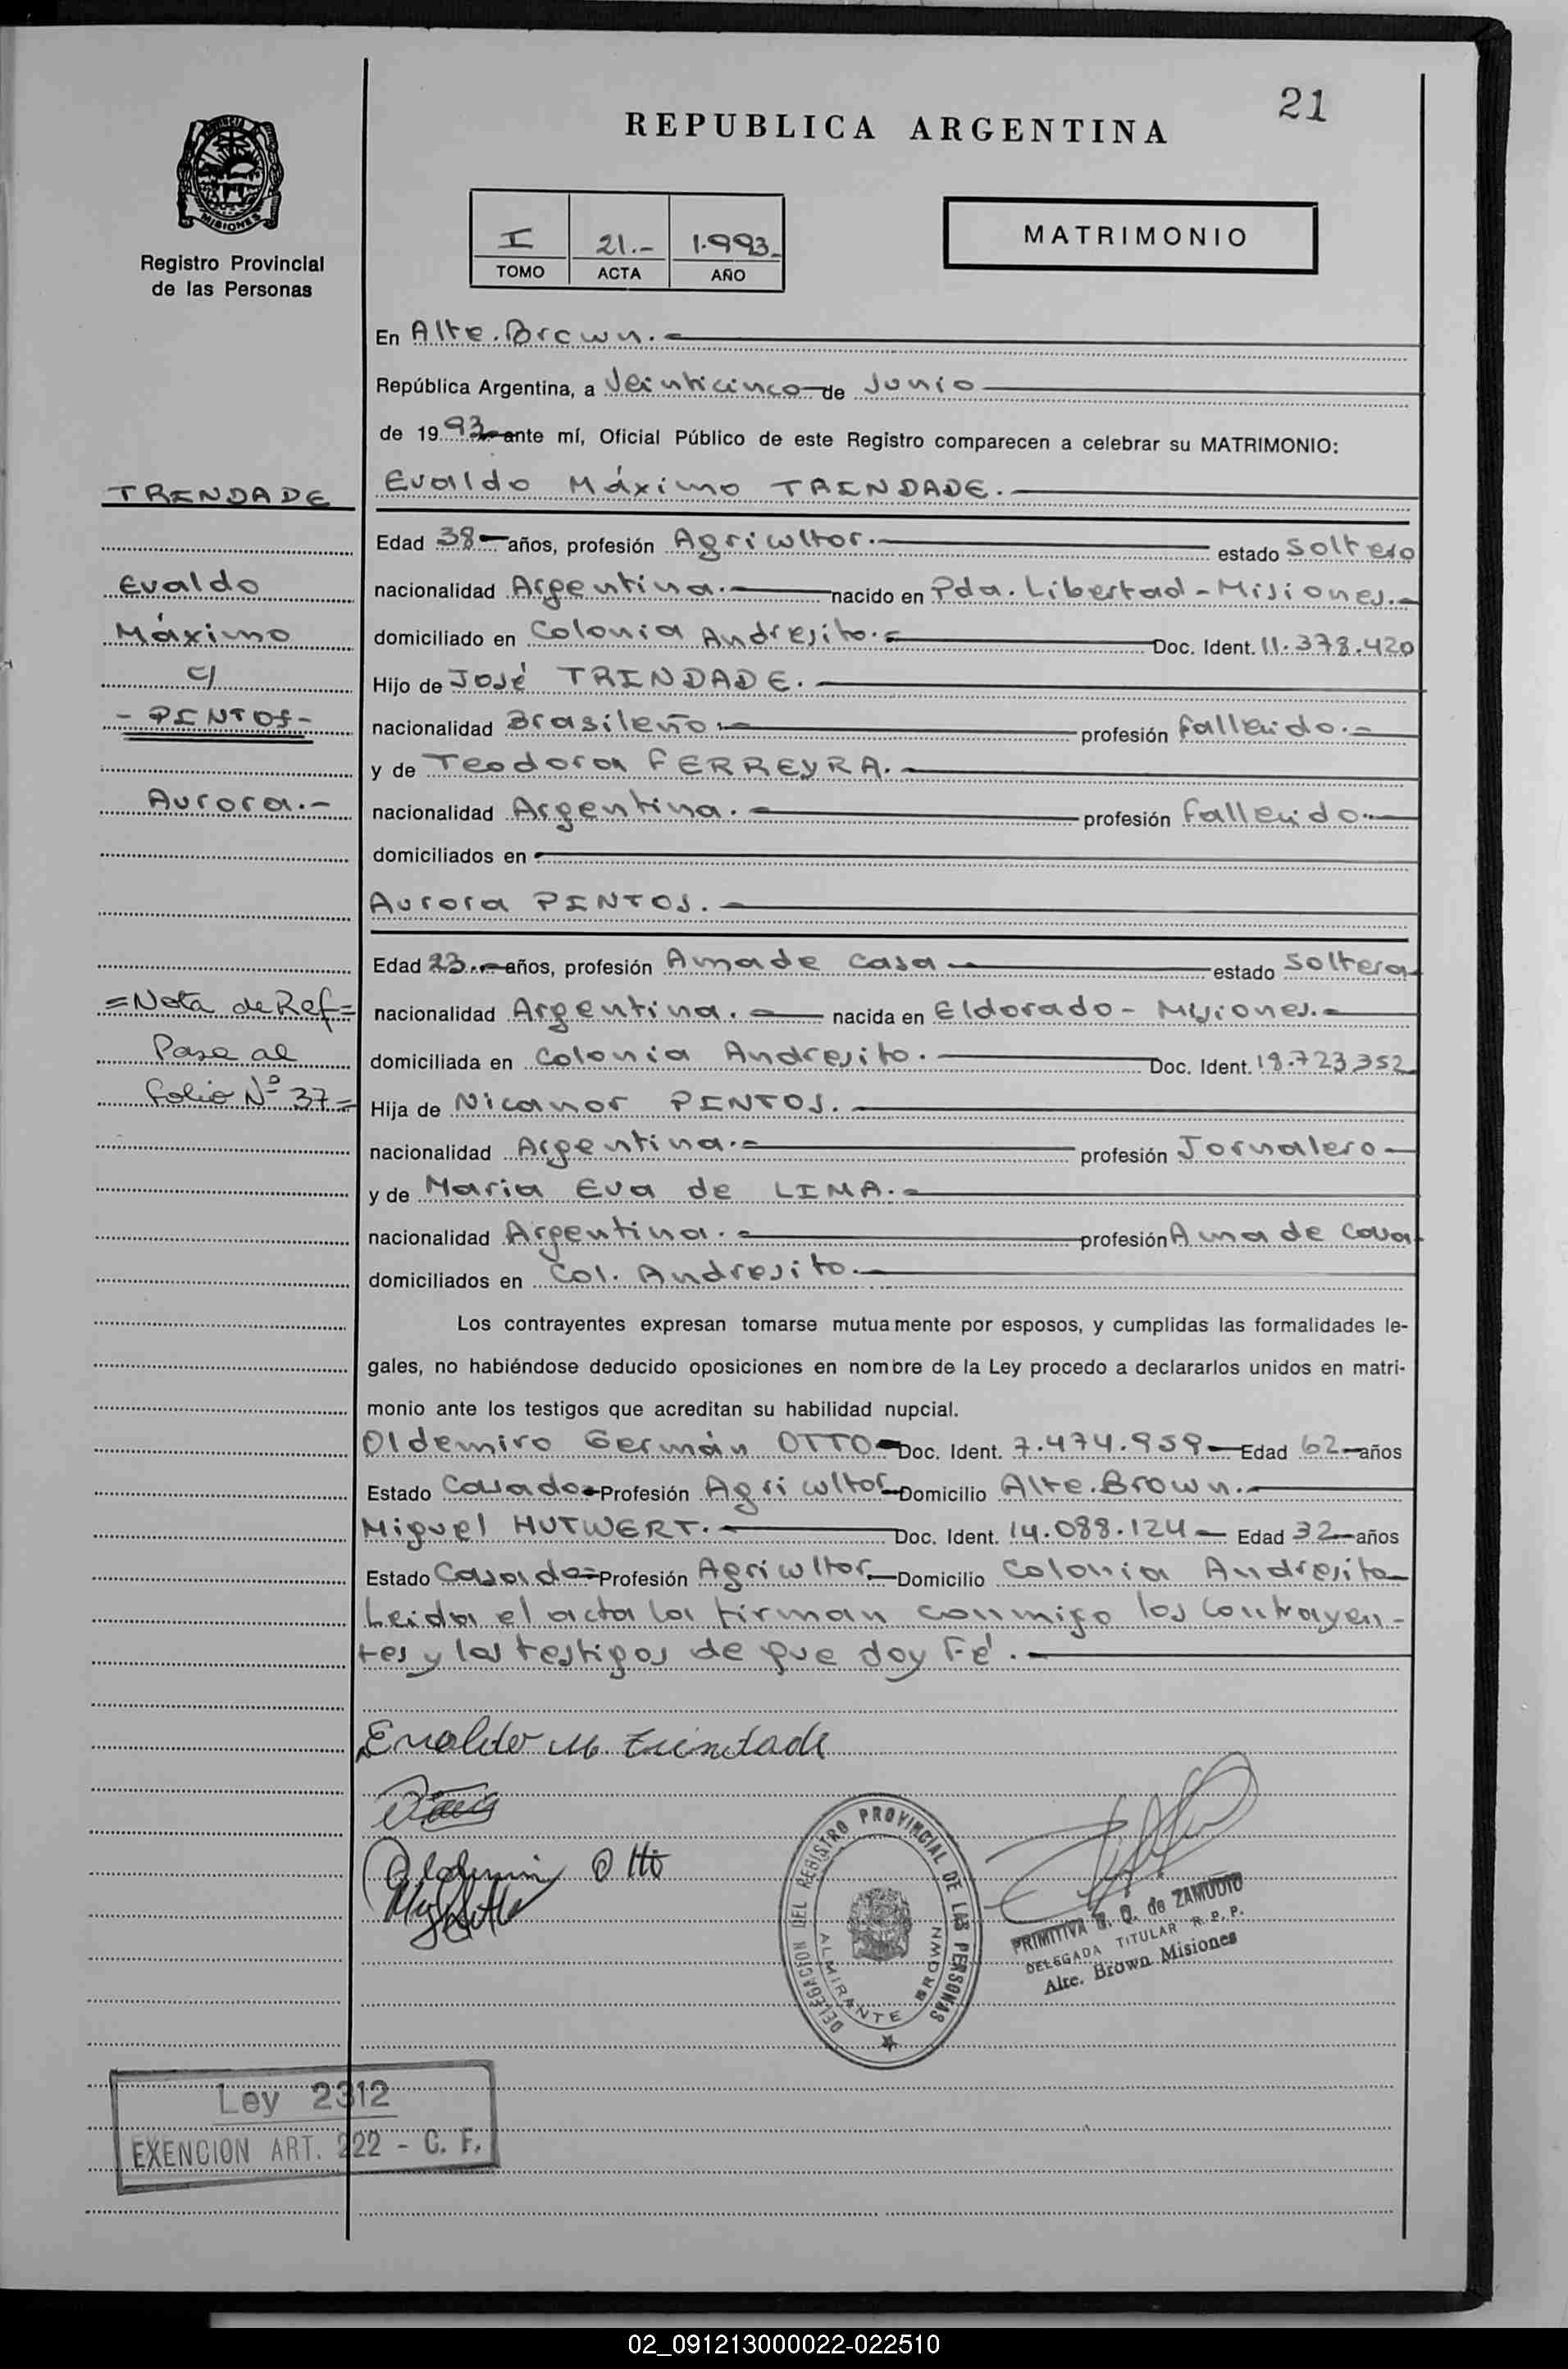 21
REPUBLICA ARGENTINA
PROVINCIA
MISIONES
Registro Provincial
de las Personas
I 21.- 1.993.-
TOMO ACTA AÑO
MATRIMONIO
En Alte. Brown.-
República Argentina, a Veinticinco de Junio
de 1993 ante mí, Oficial Público de este Registro comparecen a celebrar su MATRIMONIO:
TRINDADE
Evaldo Máximo TRINDADE.-
Edad 38 años, profesión Agricultor.- estado Soltero
Evaldo
nacionalidad Argentina.- nacido en Pda. Libertad - Misiones.-
Máximo
domiciliado en Colonia Andresito.- Doc. Ident. 11.378.420
c/
Hijo de José TRINDADE.-
- PINTOS -
nacionalidad Brasileño.- profesión fallecido.-
y de Teodora FERREYRA.-
Aurora.-
nacionalidad Argentina.- profesión fallecido.-
domiciliados en
Aurora PINTOS.-
Edad 23.- años, profesión Ama de casa - estado Soltera
=Nota de Ref=
nacionalidad Argentina.- nacida en Eldorado - Misiones.-
Pase al
domiciliada en Colonia Andresito.- Doc. Ident. 18.723.352
folio Nº 37=
Hija de Nicanor PINTOS.-
nacionalidad Argentina.- profesión Jornalero -
y de Maria Eva de LIMA.-
nacionalidad Argentina.- profesión Ama de Casa
domiciliados en Col. Andresito.-
Los contrayentes expresan tomarse mutuamente por esposos, y cumplidas las formalidades le-
gales, no habiéndose deducido oposiciones en nombre de la Ley procedo a declararlos unidos en matri-
monio ante los testigos que acreditan su habilidad nupcial.
Oldemiro Germán OTTO Doc. Ident. 7.474.959 Edad 62 años
Estado Casado Profesión Agricultor Domicilio Alte. Brown.-
Miguel HUTWERT.- Doc. Ident. 14.088.124 - Edad 32 años
Estado Casado Profesión Agricultor Domicilio Colonia Andresito
Leida el acta la firman conmigo los Contrayen-
tes y los testigos de que doy Fé.-
Evaldo M. Trindade
Oldemiro Otto
DELEGACION DEL REGISTRO PROVINCIAL DE LAS PERSONAS
ALMIRANTE BROWN
PRIMITIVA de ZAMUDIO
DELEGADA TITULAR R. P. P.
Alte. Brown Misiones
Ley 2312
EXENCION ART. 222 - C. F.
02_091213000022-022510